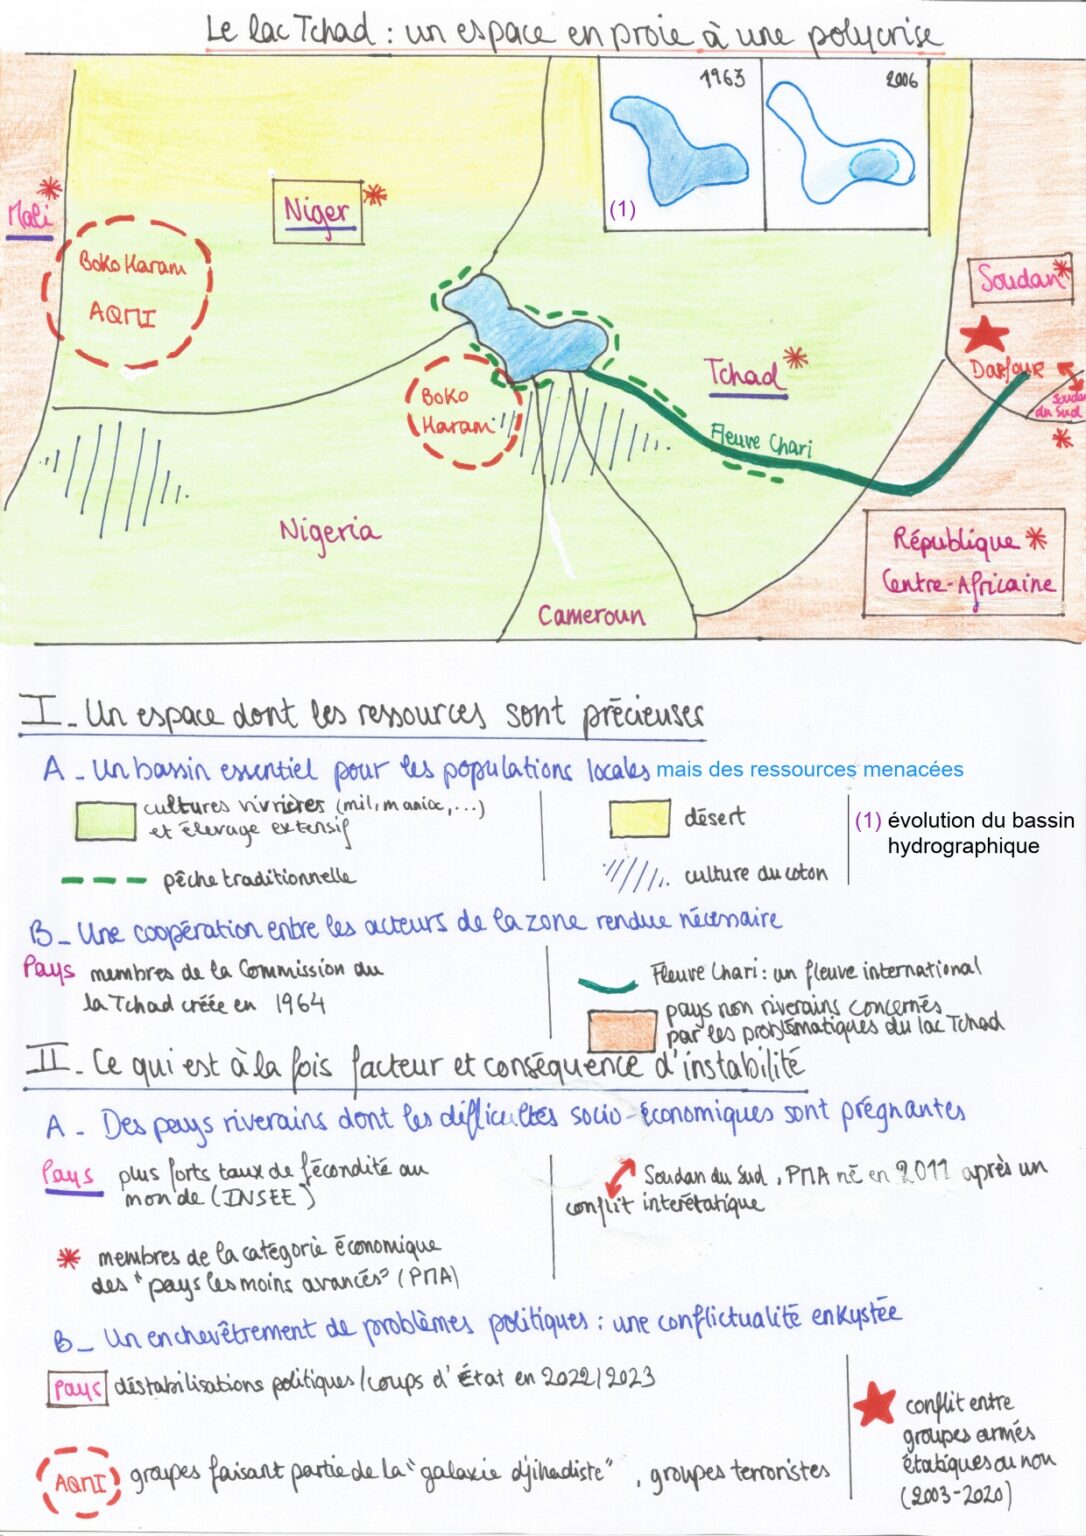 Le lac Tchad : un espace en proie à une polycrise
1963
2006
(1)
Mali
Niger
Boko Haram
AQMI
Soudan
Darfour
Soudan
du Sud
Tchad
Boko
Haram
Fleuve Chari
Nigeria
République
Centre-Africaine
Cameroun
I - Un espace dont les ressources sont précieuses
A - Un bassin essentiel pour les populations locales mais des ressources menacées
cultures vivrières (mil, manioc,...)
et élevage extensif
désert
(1) évolution du bassin
hydrographique
pêche traditionnelle
culture du coton
B - Une coopération entre les acteurs de la zone rendue nécessaire
Pays membres de la Commission du
la Tchad créée en 1964
Fleuve Chari : un fleuve international
pays non riverains concernés
par les problématiques du lac Tchad
II - Ce qui est à la fois facteur et conséquence d'instabilité
A - Des pays riverains dont les difficultés socio-économiques sont prégnantes
Pays plus forts taux de fécondité au
monde (INSEE)
Soudan du Sud, PMA né en 2011 après un
conflit interétatique
membres de la catégorie économique
des "pays les moins avancés" (PMA)
B - Un enchevêtrement de problèmes politiques : une conflictualité enkystée
Pays déstabilisations politiques/coups d'État en 2022/2023
conflit entre
groupes armés
étatiques ou non
(2003-2020)
AQMI groupes faisant partie de la "galaxie djihadiste", groupes terroristes